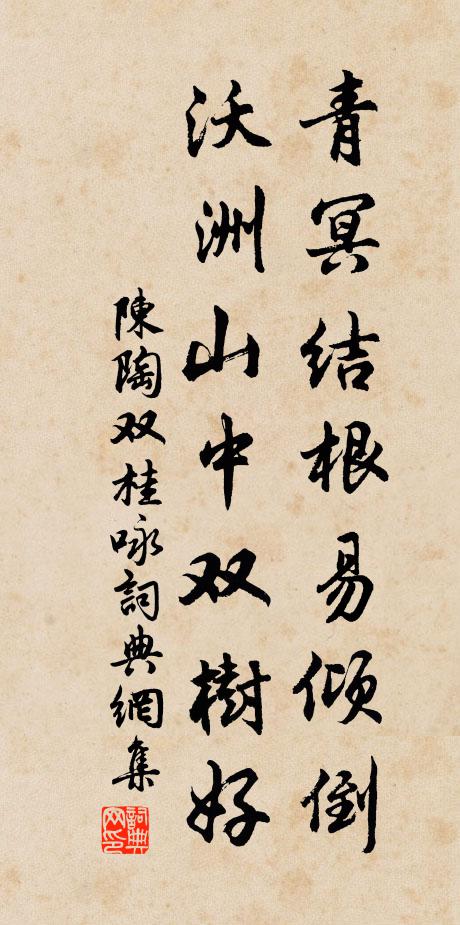 青冥结根易倾倒
沃洲山中双樹好
陳陶双桂咏詞典網集
詞典网印